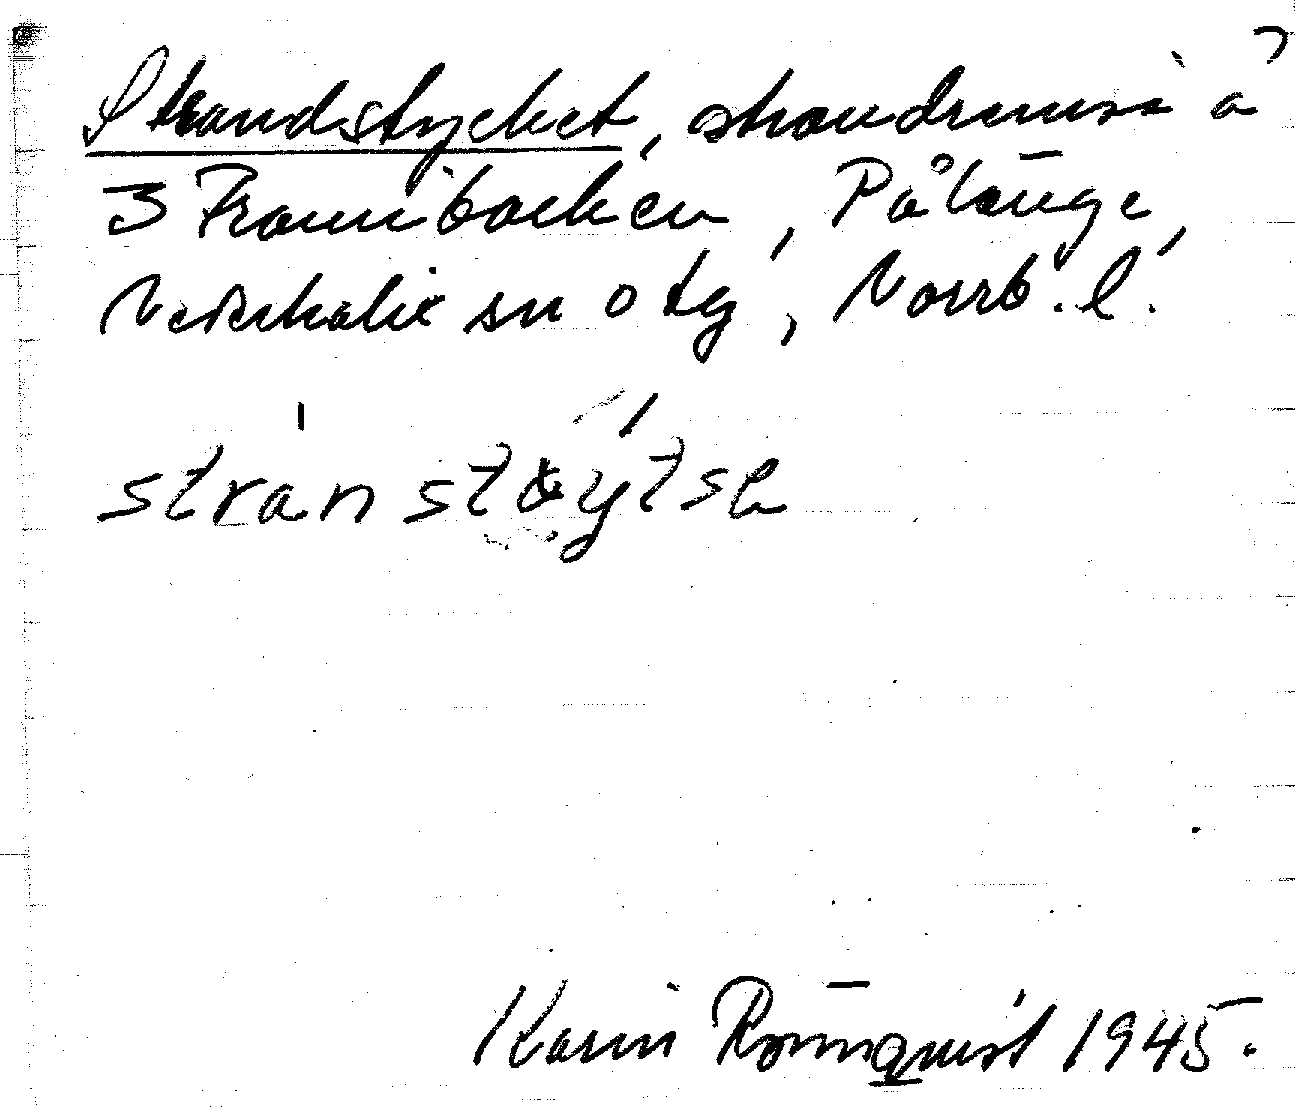 Strandstycket, strandremsa å
3 Frambacken, Pålänge,
Nederkalix sn o tg, Norrb. l.
stranstøytse
Karin Rönnquist 1945.